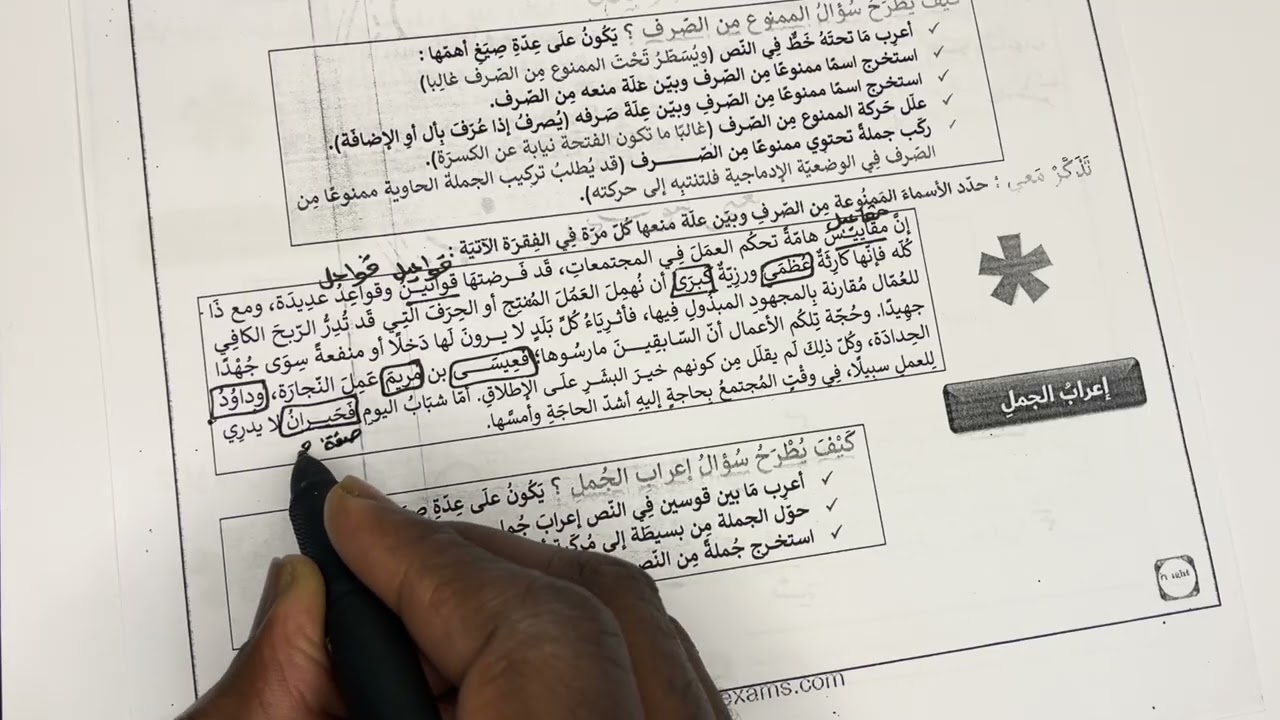 كَيْفَ يُطْرَحُ سُؤَالُ الممنوع مِن الصّرفِ ؟ يَكُونُ علَى عِدّةِ صِيَغٍ أهمّها :
✓ أعرِب مَا تحتَهُ خَطٌّ فِي النّص (ويُسَطَّرُ تَحْتَ الممنوع مِن الصّرف غالِبا)
✓ استخرج اسمًا ممنوعًا مِن الصّرف وبيّن علّة منعه مِن الصّرف.
✓ استخرج اسمًا ممنوعًا مِن الصّرفِ وبيّن عِلّةَ صَرفه (يُصرفُ إذا عُرّفَ بِأل أوِ الإضافَة).
✓ علّل حَركة الممنوع مِن الصّرف (غالبًا ما تكون الفتحة نيابة عن الكسرَة).
✓ ركّب جملةً تحتوِي ممنوعًا مِن الصّرف (قد يُطلبُ تركيب الجملة الحاوية ممنوعًا مِن
الصّرف فِي الوضعيّة الإدماجية فلتنتبِه إلى حركته).
تَذَكَّرْ مَعِي : حدّد الأسماءَ المَمنُوعة مِن الصّرفِ وبيّن علّة منعها كُلّ مرّة فِي الفِقرَة الآتيَة :
مفاعيل
إنَّ مقَاييسَ هامّةً تحكُم العمَلَ فِي المجتمعاتِ، قَد فَرضتهَا قوانينُ وقواعِدُ عديدَة، ومع ذَا
فواعيل فواعل
كُلّه فإنّها كارِثَةٌ عُظْمَى ورزِيّةٌ كُبرَى أن نُهمِلَ العَمَلَ المُنتِج أو الحِرَفَ الّتِي قد تُدِرُّ الرّبحَ الكافِي
للعُمّال مُقارنة بِالمجهودِ المبذُولِ فِيها، فأثرِيَاءُ كُلِّ بَلَدٍ لا يرونَ لَها دَخلًا أو منفعةً سِوَى جُهْدًا
جهيدًا. وحُجّة تِلكُم الأعمال أنّ السّابقِينَ مارسُوها؛ فَعِيسَى بن مريمَ عَمِلَ النّجارَة، وداوُدُ
الحِدادَة، وكُلّ ذلِكَ لَم يقلّل مِن كونهم خيرَ البشَرِ علَى الإطلاقِ. أمّا شبَابُ اليومِ فَحَيرانُ لا يدرِي
صفة
لِلعملِ سبيلًا، فِي وقْتٍ المُجتمعُ بِحاجةٍ إليهِ أشدّ الحاجَةِ وأمسَّها.
إعرابُ الجملِ
كَيْفَ يُطْرَحُ سُؤَالُ إعرابِ الجُملِ ؟ يَكُونُ علَى عِدّةِ
✓ أعرِب مَا بين قوسين فِي النّص إعرابَ
✓ حوّل الجملة مِن بسيطَة إلى
✓ استخرج جُملةً مِن
exams.com